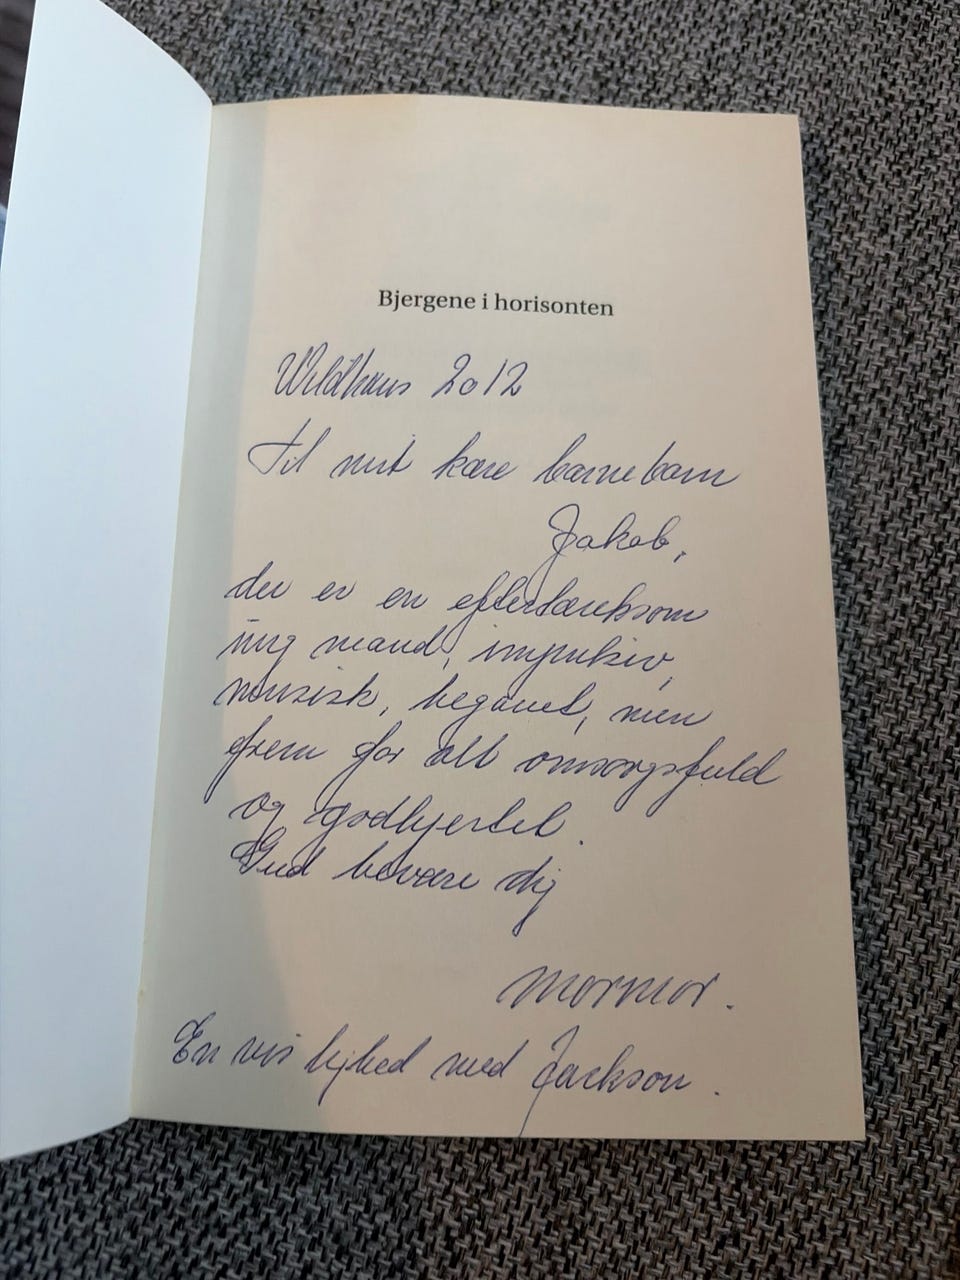 Bjergene i horisonten
Wildhaus 2012
Til mit kære barnebarn
Jakob,
der er en eftertænksom
ung mand, impulsiv,
musisk, begavet, men
frem for alt omsorgsfuld
og godhjertet.
Gud bevare dig
mormor.
En vis lighed med Jackson.